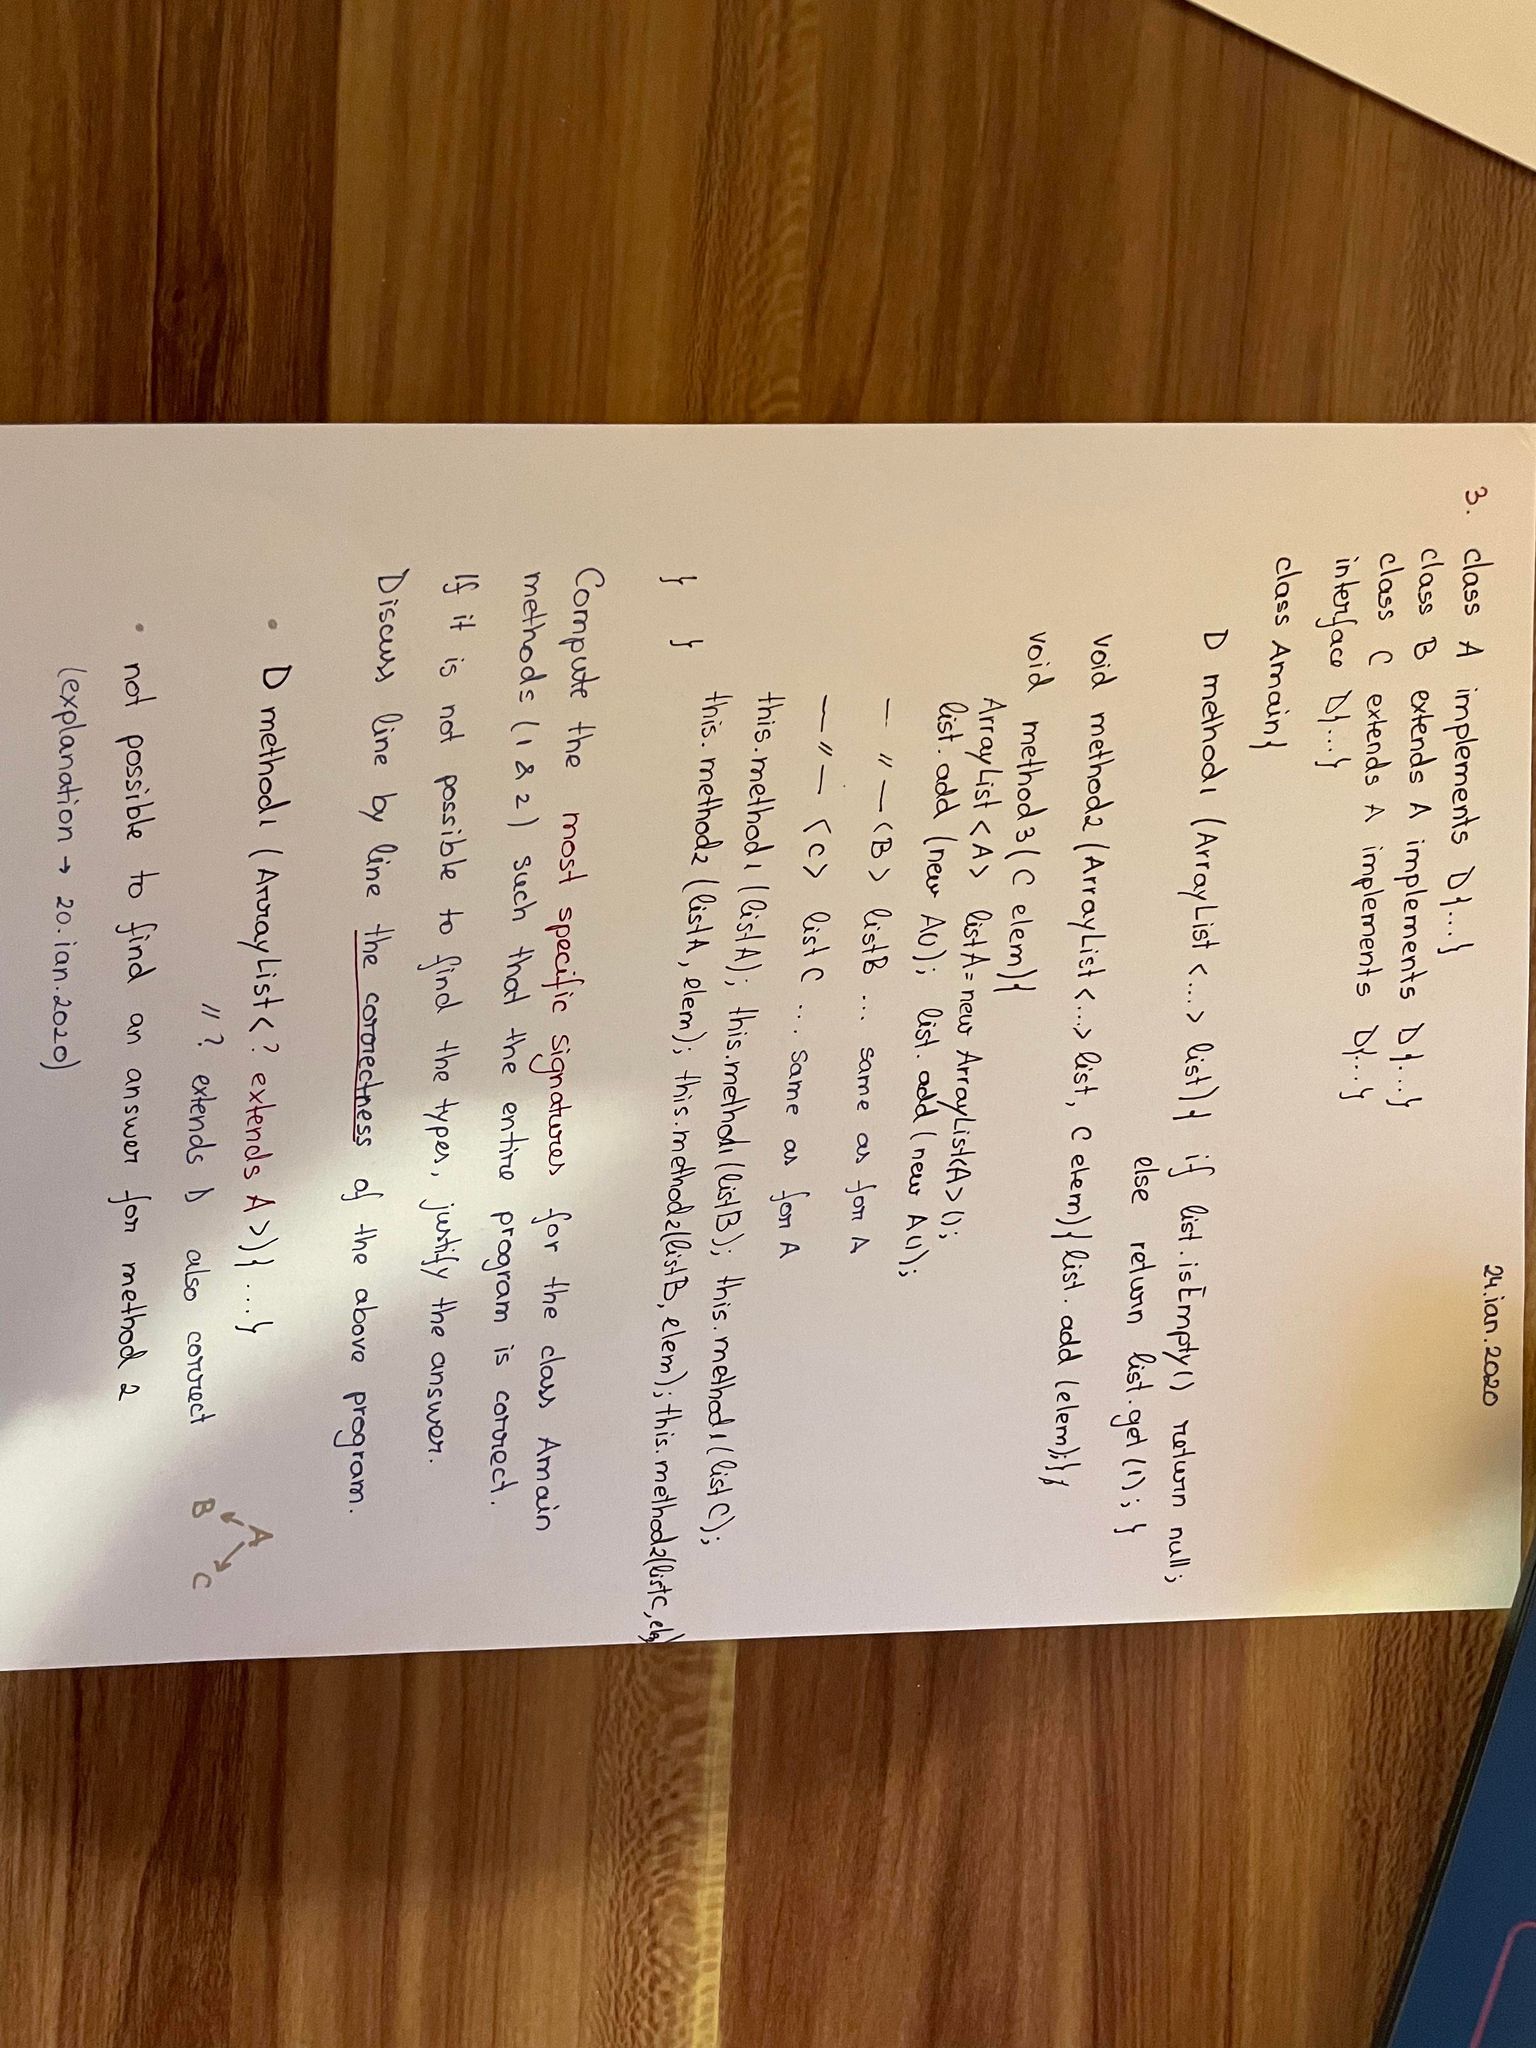 24.ian.2020
3. class A implements D{...}
class B extends A implements D{...}
class C extends A implements D{...}
interface D{...}
class Amain{
D method1 (ArrayList <...> list){ if list.isEmpty() return null;
else return list.get(1); }
void method2 (ArrayList <...> list, C elem){ list. add (elem);}
void method3 ( C elem){
ArrayList <A> listA = new ArrayList<A>();
list. add (new A()); list. add (new A());
— // — <B> listB ... same as for A
— // — <C> listC ... same as for A
this.method1 (listA); this.method1(listB); this.method1(listC);
this. method2 (listA, elem); this.method2(listB, elem); this.method2(listC, elem)
} }
Compute the most specific signatures for the class Amain
methods (1 & 2) such that the entire program is correct.
If it is not possible to find the types, justify the answer.
Discuss line by line the correctness of the above program.
• D method1 (ArrayList<? extends A>){ ...}
// ? extends D also correct
A
B C
• not possible to find an answer for method 2
(explanation → 20.ian.2020)